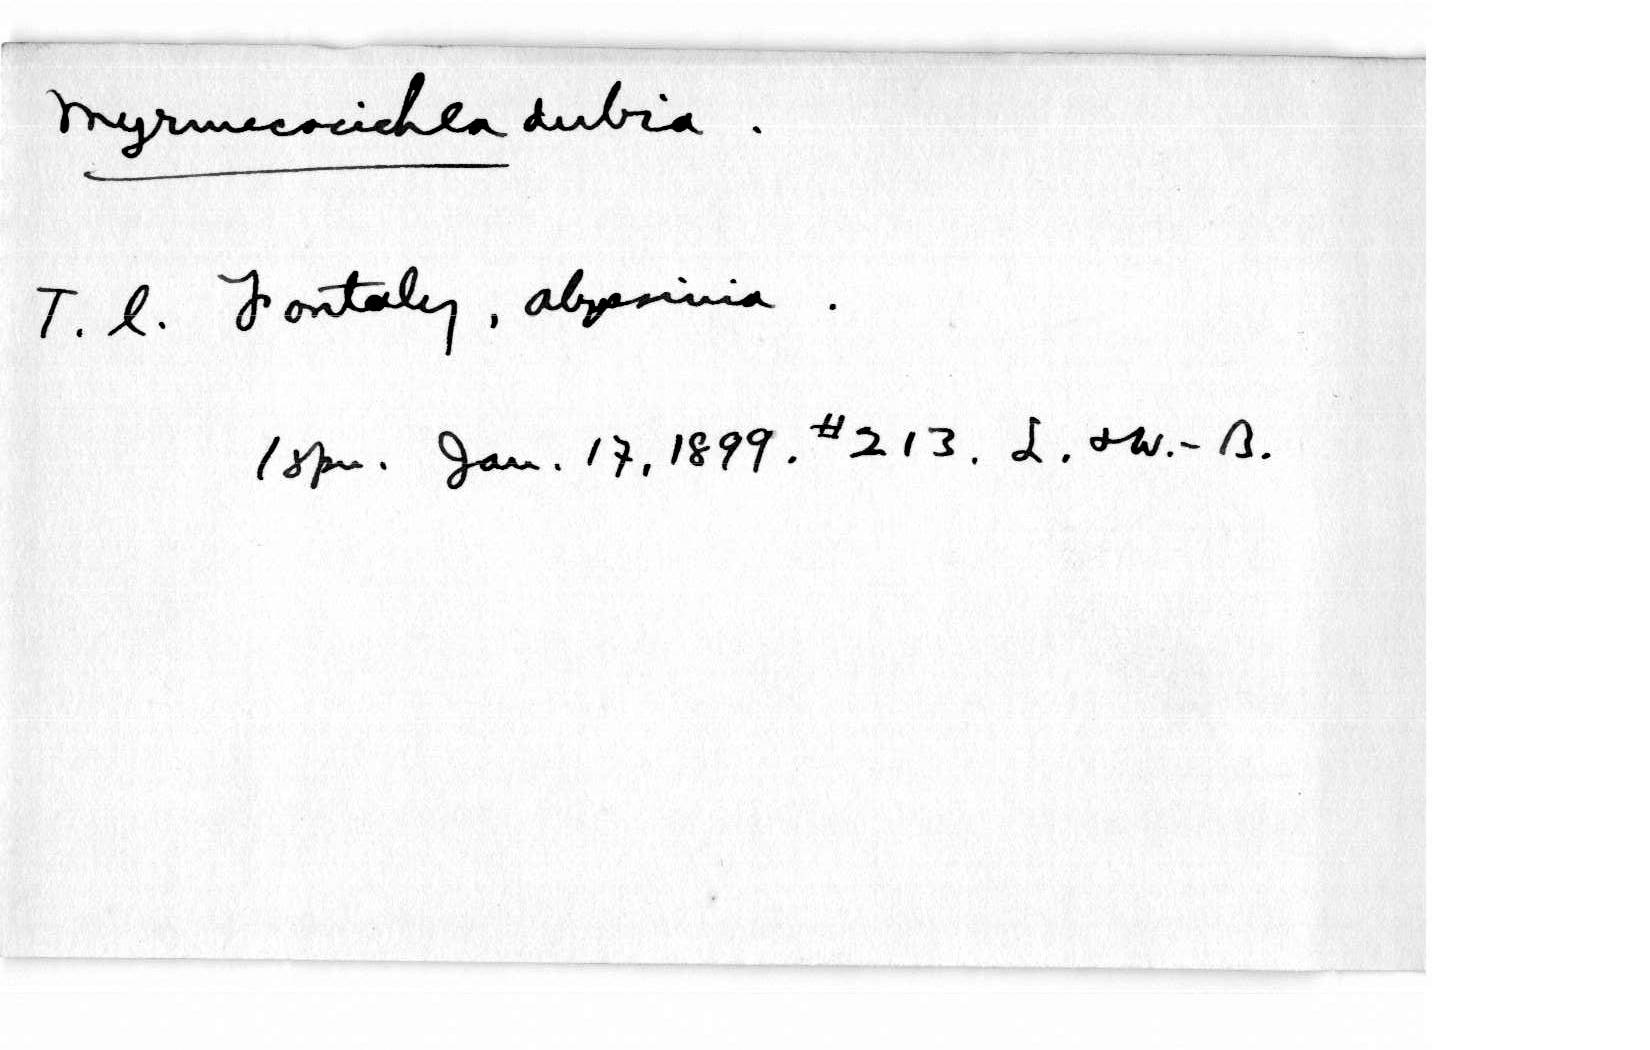 Myrmecocichla dubia.
T. l. Fontaly, Abyssinia.
1 spm. Jan. 17, 1899. #213. L. & W.-B.